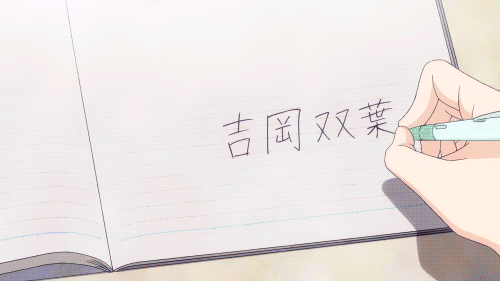 吉岡双葉